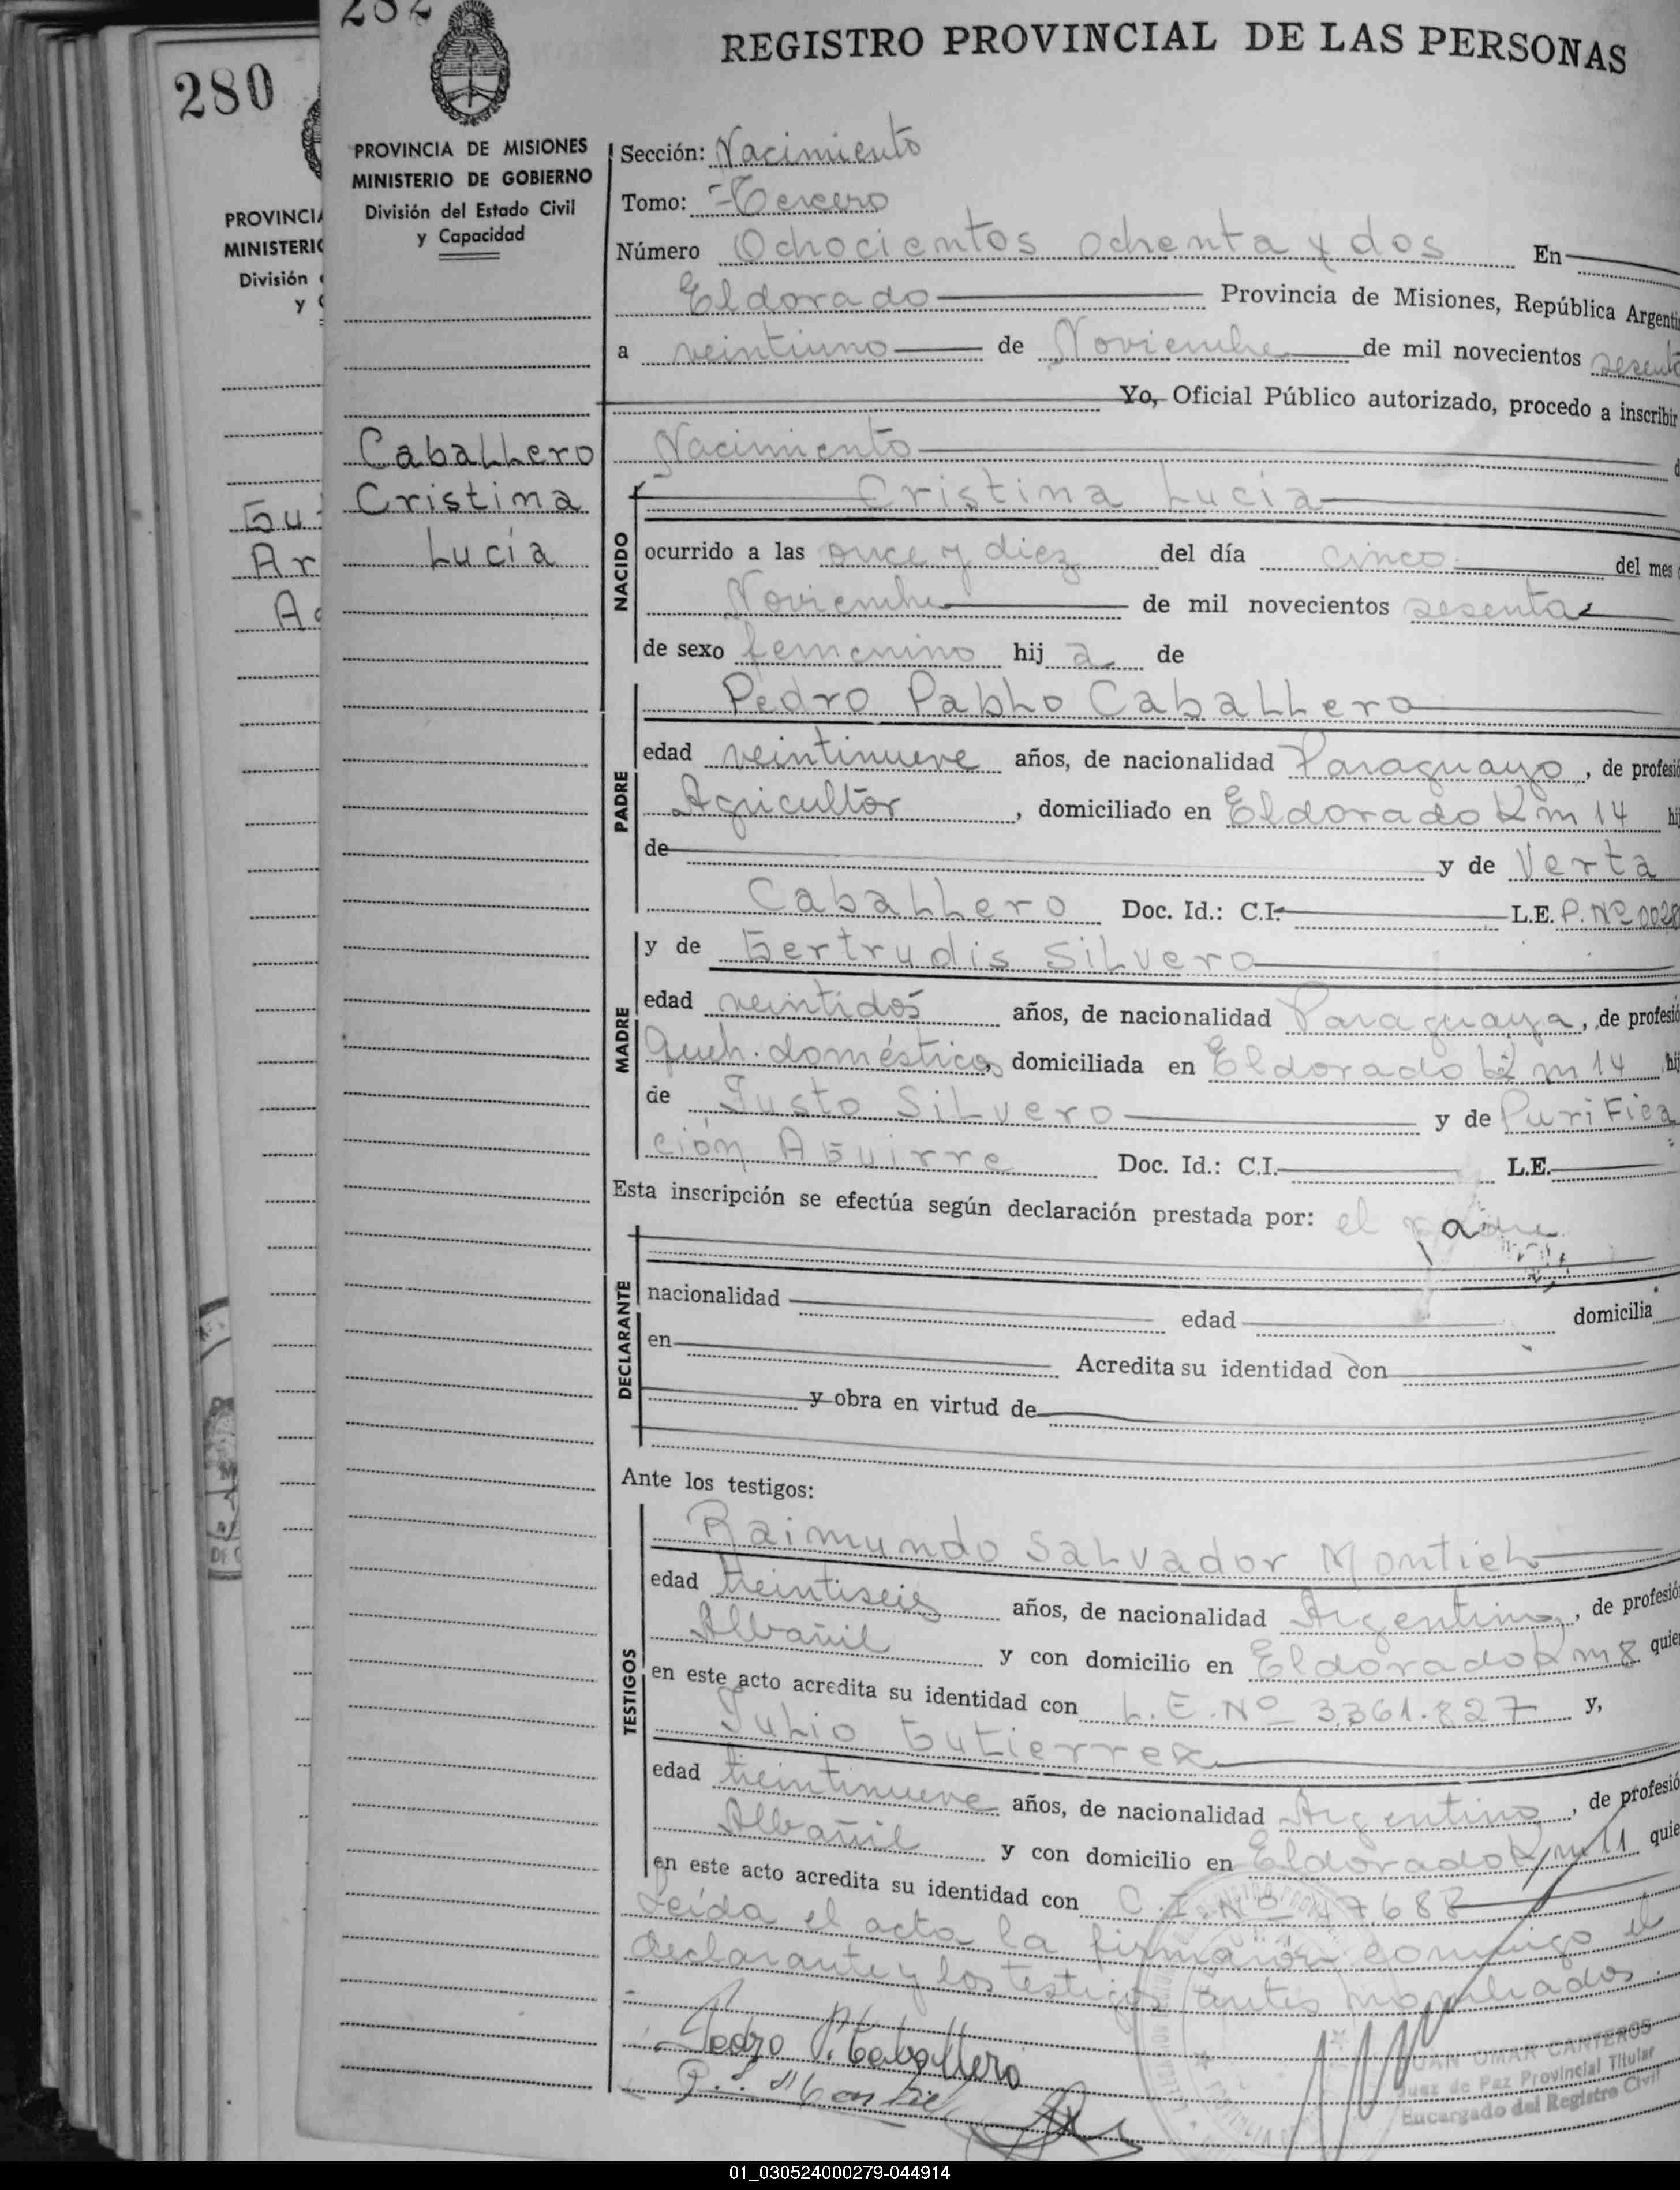 282
280
REGISTRO PROVINCIAL DE LAS PERSONAS
PROVINCIA DE MISIONES
MINISTERIO DE GOBIERNO
División del Estado Civil
y Capacidad
PROVINCIA
MINISTERIO
División
y
Gu
Ar
Caballero
Cristina
Lucía
Sección: Nacimiento
Tomo: Tercero
Número Ochocientos ochenta y dos En
Eldorado Provincia de Misiones, República Argenti
a veintiuno de Noviembre de mil novecientos sesenta
Yo, Oficial Público autorizado, procedo a inscribir
Nacimiento d
Cristina Lucía
NACIDO
ocurrido a las once y diez del día cinco del mes
Noviembre de mil novecientos sesenta
de sexo femenino hij a de
Pedro Pablo Caballero
PADRE
edad veintinueve años, de nacionalidad Paraguayo, de profesió
Agricultor, domiciliado en Eldorado Km 14 hij
de y de Verta
Caballero Doc. Id.: C.I. L.E. P. Nº 0028
MADRE
y de Gertrudis Silvero
edad veintidós años, de nacionalidad Paraguaya, de profesió
Queh. domésticos, domiciliada en Eldorado Km 14 hij
de Justo Silvero y de Purifica
ción Aguirre Doc. Id.: C.I. L.E.
Esta inscripción se efectúa según declaración prestada por: el padre
DECLARANTE
nacionalidad edad domicilia
en Acredita su identidad con
y obra en virtud de
Ante los testigos:
TESTIGOS
Raimundo Salvador Montiel
edad treintiseis años, de nacionalidad Argentino, de profesió
Albañil y con domicilio en Eldorado Km 8 quie
en este acto acredita su identidad con L.E. Nº 3.361.827 y,
Julio Gutierrez
edad treintinueve años, de nacionalidad Argentino, de profesió
Albañil y con domicilio en Eldorado Km 11 quie
en este acto acredita su identidad con C.I. Nº 47.688
Leída el acta la firmarón conmigo el
declarante y los testigos antes nombrados.
Pedro P. Caballero
R. S. Montiel
JUAN OMAR CANTEROS
Juez de Paz Provincial Titular
Encargado del Registro Civil
01_030524000279-044914